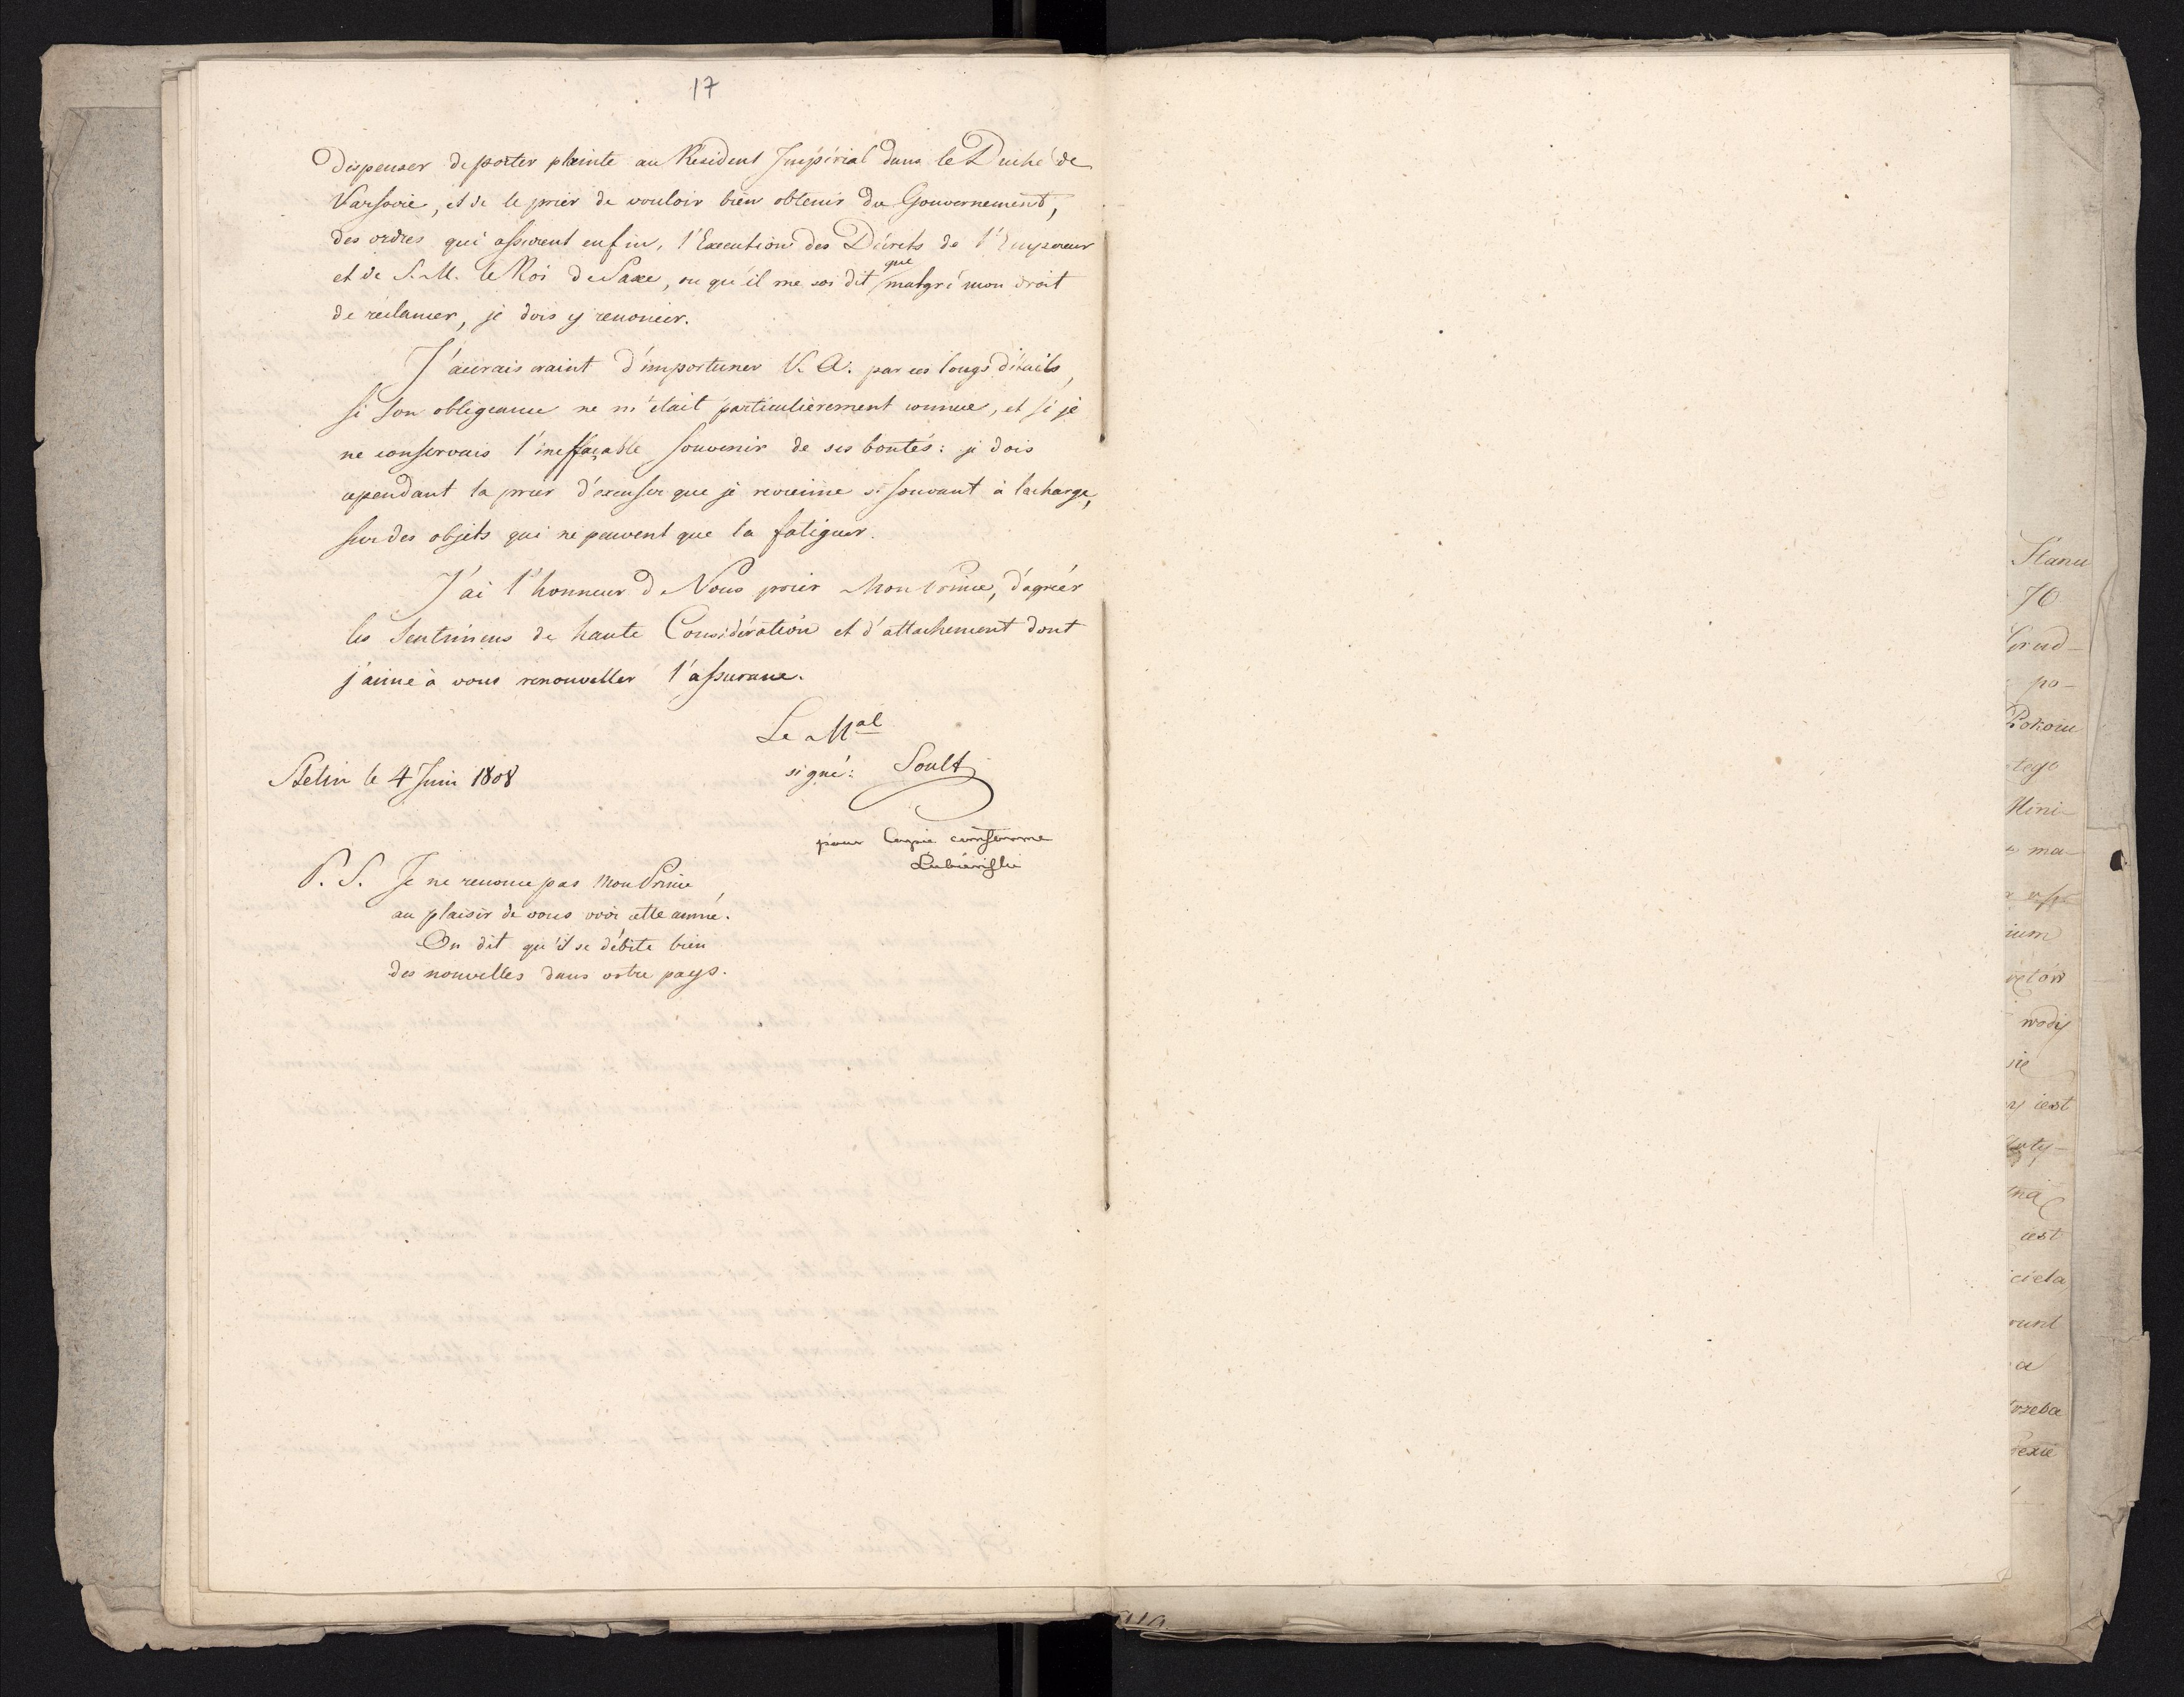 17
dispenser de porter plainte au Résident Impérial dans le Duché de
Varsovie, et de le prier de vouloir bien obtenir du Gouvernement,
des ordres qui assurent enfin, l'Execution des Décrets de l'Empereur
et de S. M. le Roi de Saxe, ou qu'il me soi dit que malgré mon droit
de réclamer, je dois y renoncer.
J'aurais craint d'importuner V. A. par ces longs détails,
si son obligeance ne m'était particulièrement connue, et si je
ne conservais l'ineffaçable souvenir de ses bontés: je dois
cependant la prier d'excuser que je revienne si souvant à la charge,
sur des objets qui ne peuvent que la fatiguer.
J'ai l'honneur de Vous prier Mon Prince, d'agréer
les Sentimens de haute Considération et d'attachement dont
j'aime à vous renouveller l'assurance.
Le Mal
signé: Soult
Stetin le 4 Juin 1808
pour Copie conforme
Lubienski
P. S. Je ne renonce pas Mon Prince,
au plaisir de vous voir cette année.
On dit qu'il se débite bien
des nouvelles dans votre pays.
Stanu
70
Grud-
po-
tego
Mini-
ma-
ium
wody
iest
iest
ciela
a